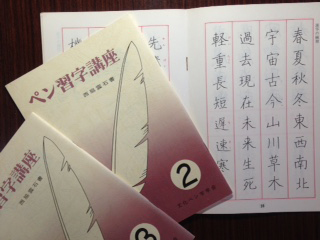 ペン習字講座
2
ペン習字講座
3
春夏秋冬東西南北
宇宙古今山川草木
過去現在未来生死
軽重長短遅速寒
先